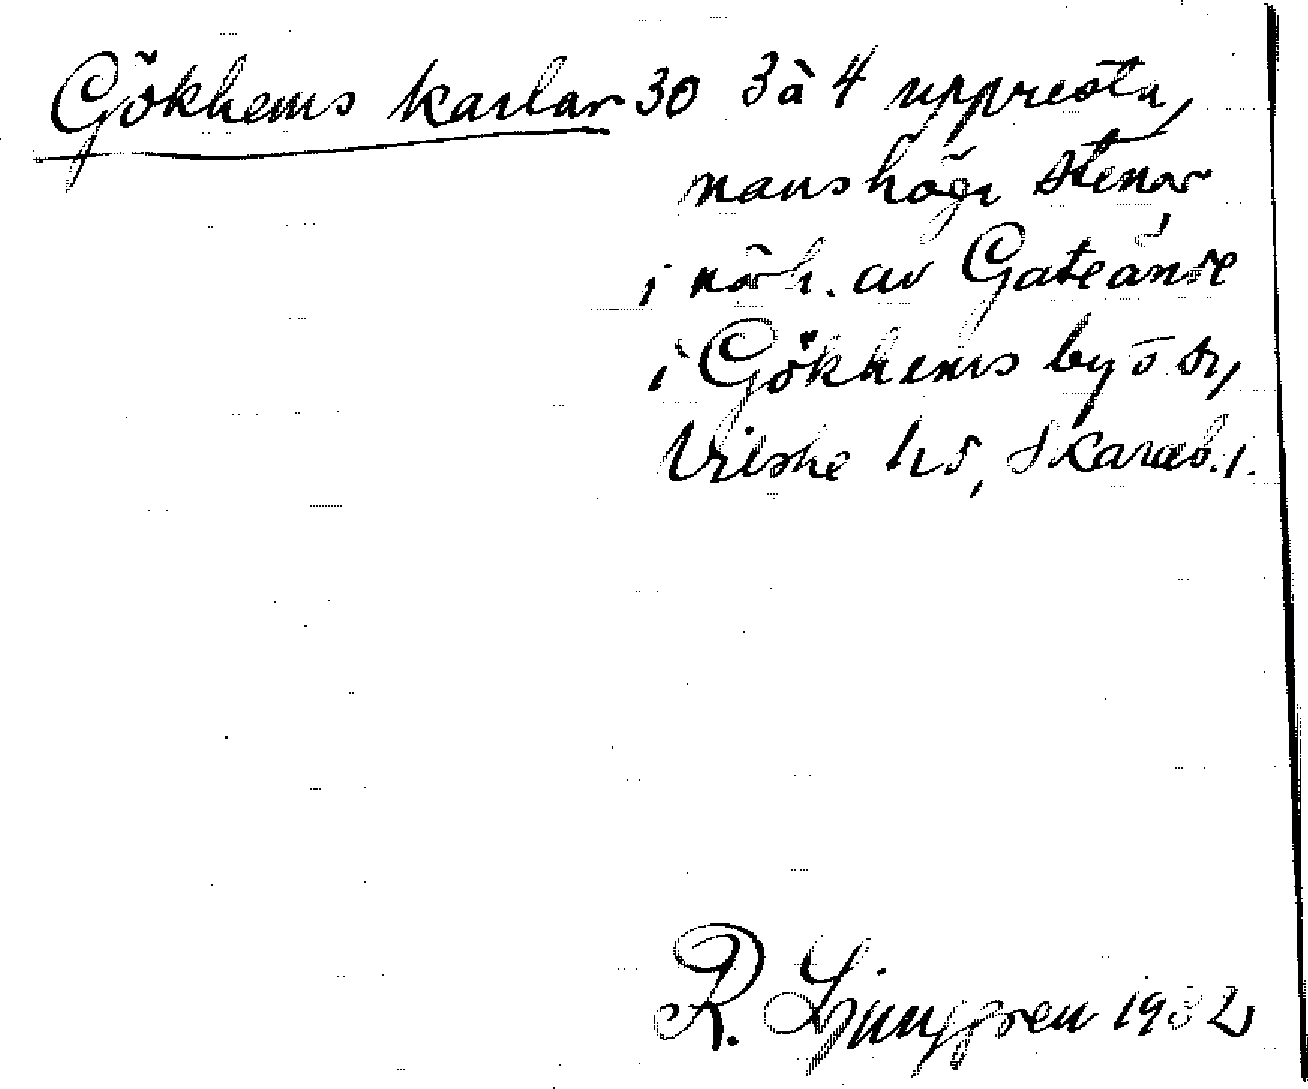 Gökhems karlar 30 3 à 4 uppresta,
manshöga stenar
i närh. av Gateån
i Gökhems by o sn,
Vilske hd, Skarab. l.
R. Ljunggren 1932